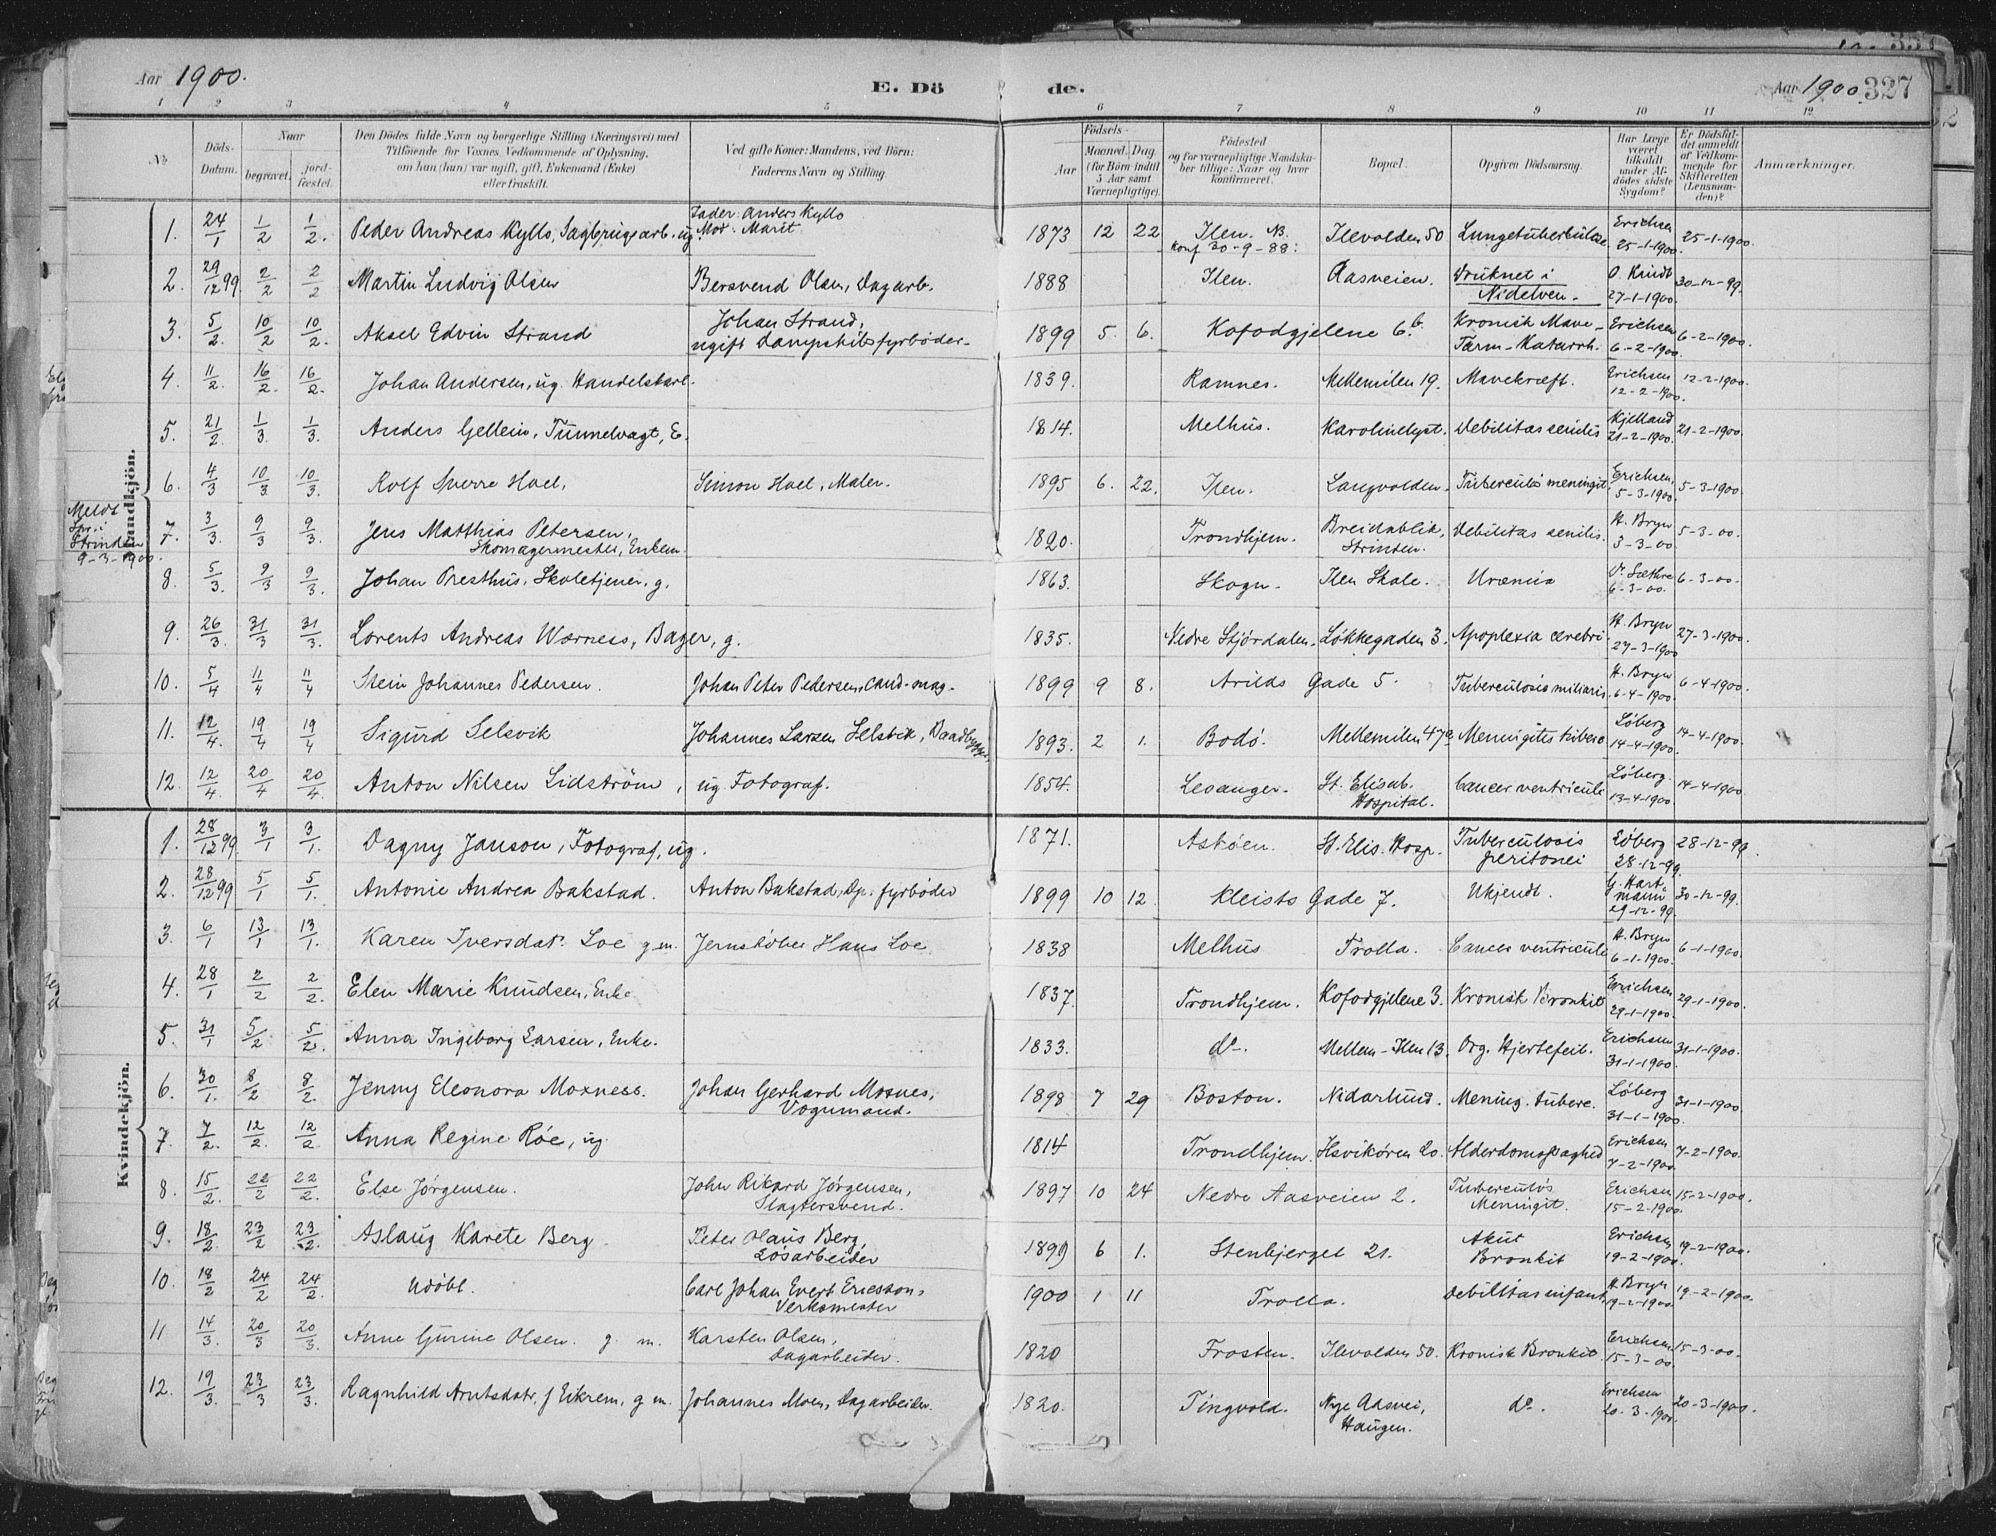 Aar 1900. E. Dö de. Aar 1900. 327
1 2 3 4 5 6 7 8 9 10 11 12
No. Döds-Datum. Naar begravet. jord-fæstet. Den Dödes fulde Navn og borgerlige Stilling (Næringsvei) med Tilföiende for Voxnes Vedkommende af Oplysning, om han (hun) var ugift, gift, Enkemand (Enke) eller fraskilt. Ved gifte Koner: Mandens, ved Börn: Faderens Navn og Stilling. Födsels- Aar Maaned. Dag. (for Börn indtil 5 Aar samt Værnepligtige). Födested og for værnepligtige Mandska-ber tillige: Naar og hvor konfirmeret. Bopæl. Opgiven Dödsaarsag. Har Læge været tilkaldt under Af-dödes sidste Sygdom? Er Dödsfal-det anmeldt af Vedkom-mende for Skifteretten (Lensman-den)? Anmærkninger.
Mandkjön.
1. 24/1 1/2 1/2. Peder Andreas Kyllo, Sagbrugsarb. ug. Fader: Anders Kyllo Mor: Marit 1873 12 22 Ilen. NB. konf 30-9-88. Ilevolden 50 Lungetuberkulose Erichsen 25-1-1900. 25-1-1900.
2. 29/12 99 2/2 2/2 Martin Ludvig Olsen Bersvend Olsen, Dagarb. 1888 Ilen. Aasveien. Druknet i Nidelven. O. Kindt 27-1-1900. 30-12-99.
3. 5/2. 10/2 10/2. Aksel Edvin Strand Johan Strand, ugift Dampskibsfyrbøder. 1899 5. 6. Kofodgjelene 6.b. Kronisk Mave-Tarm-Katarrh. Erichsen 6-2-1900. 6-2-1900.
4. 11/2. 16/2. 16/2. Johan Andersen, ug. Handelskarl. 1839. Ramnes. Mellemilen 19. Mavekræft. Erichsen 12-2-1900. 12-2-1900.
5. 21/2 1/3. 1/3. Anders Gellein, Tunnelvagt, E. 1814. Melhus. Karolinelyst. Debilitas senilis Kjelland 21-2-1900. 21-2-1900.
6. 4/3 10/3 10/3. Rolf Sverre Hoel, Simon Hoel, Maler. 1895 6. 22. Ilen. Langvolden. Tuberculøs meningit. Erichsen 5-3-1900. 5-3-1900.
Meldt Spr. i Strinden 9-3-1900.
7. 3/3. 9/3 9/3. Jens Matthias Petersen, Skomagermester, Enkem. 1820. Trondhjem. Breidablik, Strinden. Debilitas senilis. H. Bryn 3-3-00. 5-3-00.
8. 5/3. 9/3 9/3. Johan Presthus, Skoletjener, g. 1863. Skogn. Ilen Skole. Uræmia Sæthre 6-3-00. 6-3-00.
9. 26/3. 31/3 31/3. Lorents Andreas Wærness, Bager, g. 1835. Nedre Stjørdalen. Løkkegaden 3. Apoplexia cerebri H. Bryn 27-3-1900 27-3-1900.
10. 5/4 11/4 11/4 Stein Johannes Pedersen. Johan Peter Pedersen, cand. mag. 1899 9 8. Arilds Gade 5. Tuberculosis miliaris. H. Bryn 6-4-1900. 6-4-1900.
11. 12/4. 19/4 19/4 Sigurd Selsvik Johannes Larsen Selsvik, Baadbygger. 1893. 2 1. Bodö. Mellemilen 47a. Meningitis tuberc. Löberg 14-4-1900. 14-4-1900.
12. 12/4. 20/4 20/4. Anton Nilsen Lidström, ug. Fotograf. 1854. Leanger. St. Elisab. Hospital. Cancer ventriculi Löberg. 13-4-1900. 14-4-1900.
Kvindekjön.
1. 28/12 99. 3/1 3/1. Dagny Janson, Fotograf, ug. 1871. Askøen. St. Elis. Hosp. Tuberculosis peritonei Löberg 28-12-99. 28-12-99.
2. 28/12 99 5/1 5/1. Antonie Andrea Bakstad. Anton Bakstad, Dp. fyrbøder 1899 10 12. Kleists Gade 7. Ukjendt. G. Hartmann 29-12-99. 30-12-99.
3. 6/1 13/1 13/1. Karen Iversdatr. Loe g m. Jernstøber Hans Loe. 1838 Melhus Trolla. Cancer ventriculi H. Bryn 6-1-1900. 6-1-1900.
4. 28/1 2/2 2/2. Elen Marie Knudsen, Enke 1837. Trondhjem. Kofodgjelene 3. Kronisk Bronkit Erichsen 29-1-1900. 29-1-1900.
5. 31/1 5/2 5/2. Anna Ingeborg Larsen, Enke. 1833. do. Mellem-Ilen 13. Org. Hjertefeil. Erichsen 31-1-1900. 31-1-1900.
6. 30/1. 8/2 8/2. Jenny Eleonora Moxness. Johan Gerhard Moxnes, Vognmand. 1898 7 29 Boston. Nidarlund. Mening. tuberc. Löberg 31-1-1900. 31-1-1900.
7. 7/2. 12/2. 12/2. Anna Regine Röe, ug. 1814 Trondhjem. Ilsvikøren 20. Alderdomssvaghed Erichsen 7-2-1900. 7-2-1900.
8. 15/2. 22/2 22/2. Else Jörgensen. John Rikard Jörgensen, Slagtersvend. 1897 10 24 Nedre Aasveien 2. Tuberculøs Meningit. Erichsen 15-2-1900. 15-2-1900.
9. 18/2. 23/2 23/2. Aslaug Karete Berg Peter Olaus Berg, Løsarbeider 1899 6 1. Stenbjerget 21. Akut Bronkit Erichsen 19-2-1900. 19-2-1900.
10. 18/2 24/2 24/2. Udöbt. Carl Johan Evert Ericsson, Verksmester 1900 1 11 Trolla. Debilitas infant. H. Bryn 19-2-1900. 19-2-1900.
11 14/3. 20/3 20/3. Anne Gurine Olsen. g. m. Karsten Olsen, Dagarbeider. 1820 Frosten. Ilevolden 50. Kronisk Bronkit Erichsen 15-3-00. 15-3-00.
12. 19/3. 23/3 23/3. Ragnhild Arntsdatr. f Eikrem, g m. Johannes Moen, Dagarbeider. 1820. Tingvold. Nye Aasvei, Haugen. do. Erichsen 20-3-1900. 20-3-1900.